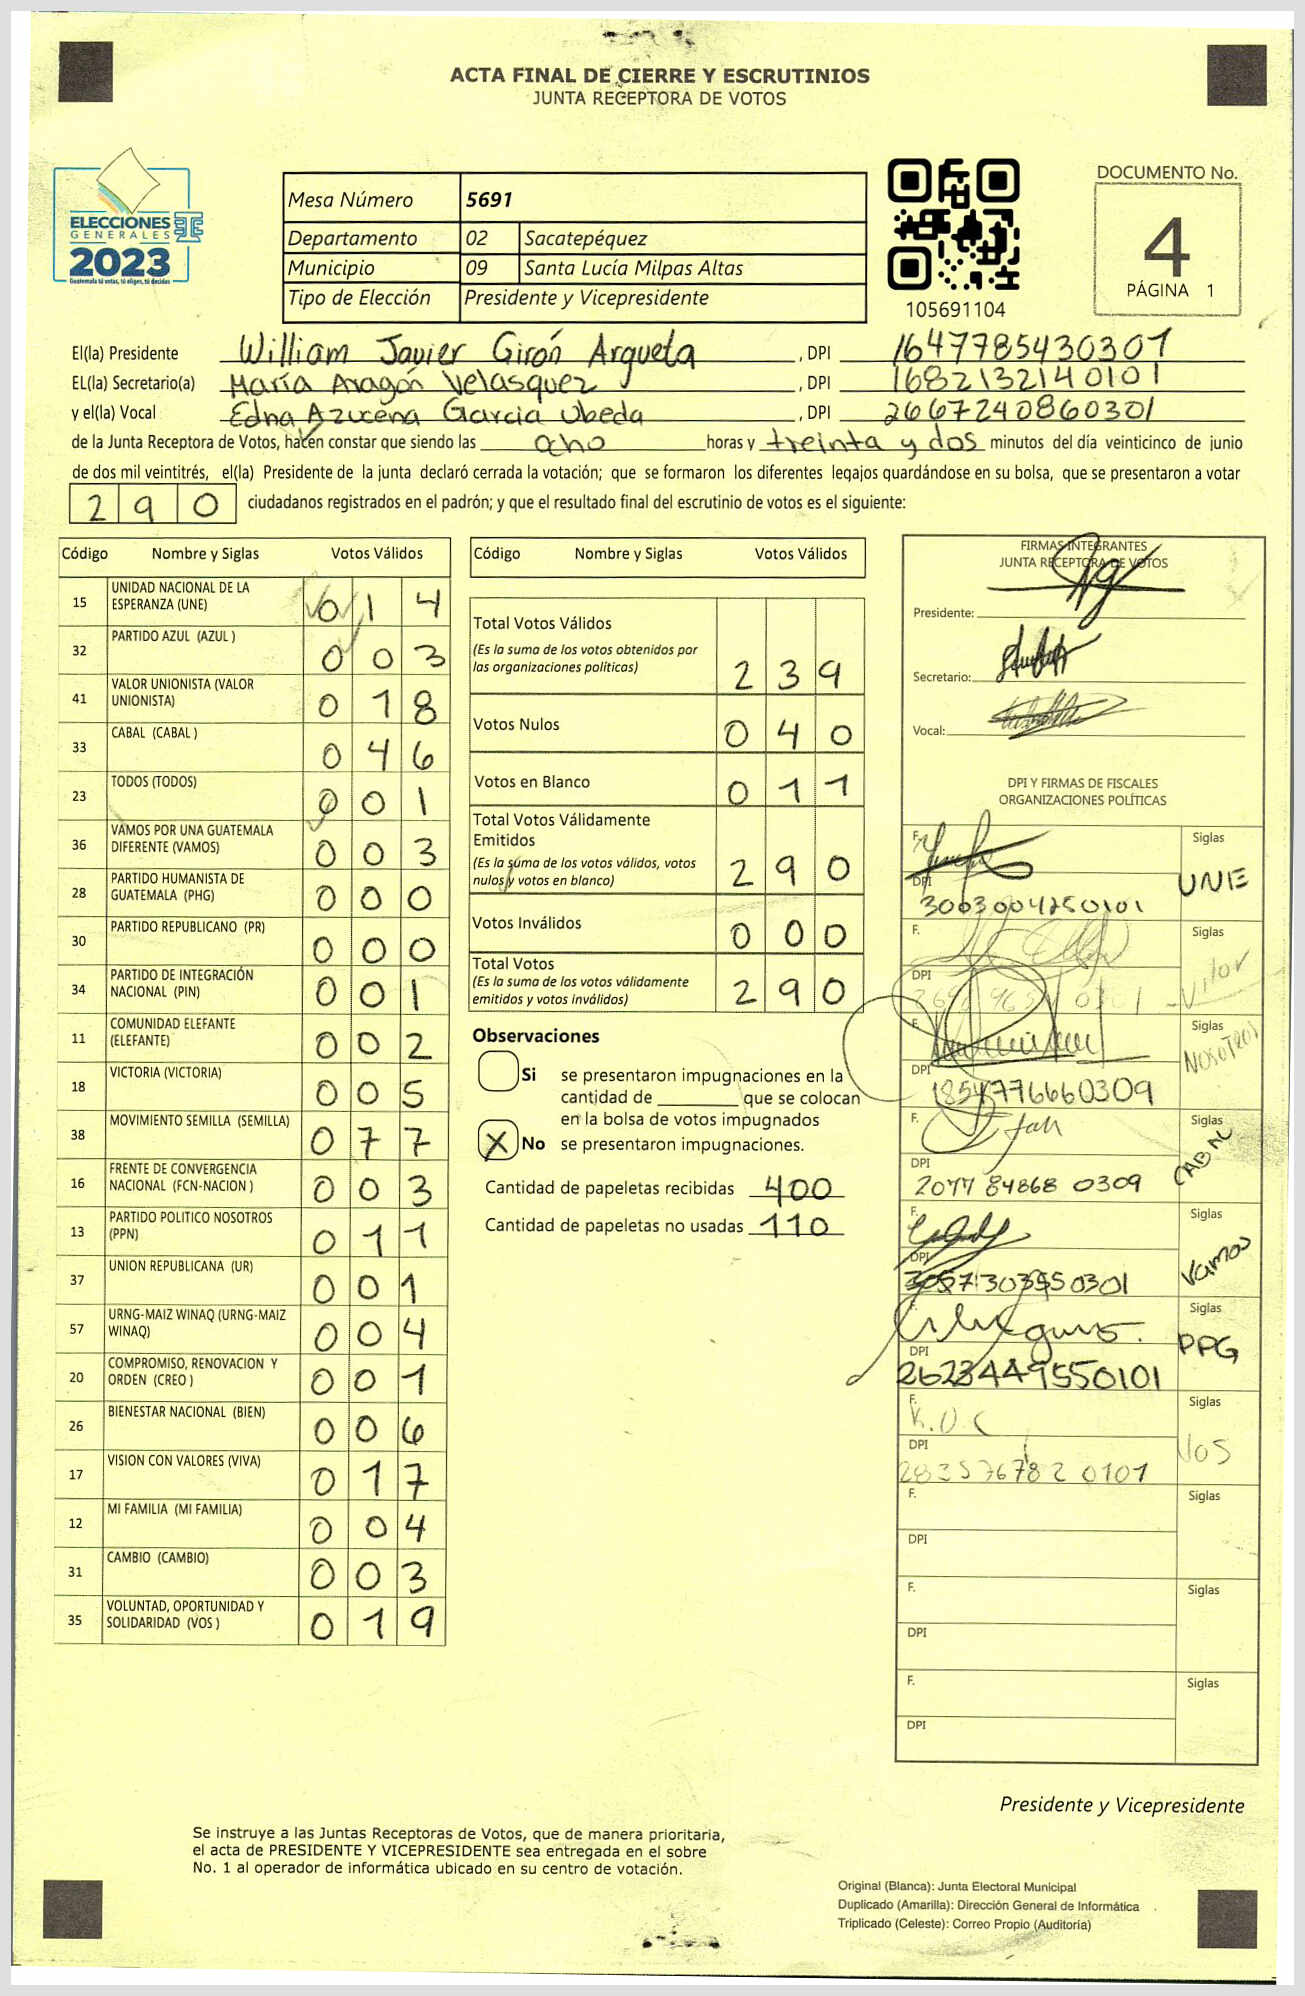 ACTA FINAL DE CIERRE Y ESCRUTINIOS
JUNTA RECEPTORA DE VOTOS
ELECCIONES
GENERALES
2023
Guatemala tú votas, tú eliges, tú decides
Mesa Número 5691
Departamento 02 Sacatepéquez
Municipio 09 Santa Lucía Milpas Altas
Tipo de Elección Presidente y Vicepresidente
105691104
DOCUMENTO No.
4
PÁGINA 1
El(la) Presidente William Javier Girón Argueta, DPI 1647785430307
EL(la) Secretario(a) María Aragón Velasquez, DPI 1682132140101
y el(la) Vocal Edna Azucena Garcia Ubeda, DPI 2667240860301
de la Junta Receptora de Votos, hacen constar que siendo las ocho horas y treinta y dos minutos del día veinticinco de junio
de dos mil veintitrés, el(la) Presidente de la junta declaró cerrada la votación; que se formaron los diferentes legajos guardándose en su bolsa, que se presentaron a votar
290 ciudadanos registrados en el padrón; y que el resultado final del escrutinio de votos es el siguiente:
Código Nombre y Siglas Votos Válidos
15 UNIDAD NACIONAL DE LA ESPERANZA (UNE) 014
32 PARTIDO AZUL (AZUL ) 003
41 VALOR UNIONISTA (VALOR UNIONISTA) 018
33 CABAL (CABAL ) 046
23 TODOS (TODOS) 001
36 VAMOS POR UNA GUATEMALA DIFERENTE (VAMOS) 003
28 PARTIDO HUMANISTA DE GUATEMALA (PHG) 000
30 PARTIDO REPUBLICANO (PR) 000
34 PARTIDO DE INTEGRACIÓN NACIONAL (PIN) 001
11 COMUNIDAD ELEFANTE (ELEFANTE) 002
18 VICTORIA (VICTORIA) 005
38 MOVIMIENTO SEMILLA (SEMILLA) 077
16 FRENTE DE CONVERGENCIA NACIONAL (FCN-NACION ) 003
13 PARTIDO POLITICO NOSOTROS (PPN) 011
37 UNION REPUBLICANA (UR) 001
57 URNG-MAIZ WINAQ (URNG-MAIZ WINAQ) 004
20 COMPROMISO, RENOVACION Y ORDEN (CREO ) 001
26 BIENESTAR NACIONAL (BIEN) 006
17 VISION CON VALORES (VIVA) 017
12 MI FAMILIA (MI FAMILIA) 004
31 CAMBIO (CAMBIO) 003
35 VOLUNTAD, OPORTUNIDAD Y SOLIDARIDAD (VOS ) 019
Código Nombre y Siglas Votos Válidos
Total Votos Válidos
(Es la suma de los votos obtenidos por
las organizaciones políticas) 239
Votos Nulos 040
Votos en Blanco 011
Total Votos Válidamente
Emitidos
(Es la suma de los votos válidos, votos
nulos y votos en blanco) 290
Votos Inválidos 000
Total Votos
(Es la suma de los votos válidamente
emitidos y votos inválidos) 290
Observaciones
Si se presentaron impugnaciones en la
cantidad de ________ que se colocan
en la bolsa de votos impugnados
X No se presentaron impugnaciones.
Cantidad de papeletas recibidas 400
Cantidad de papeletas no usadas 110
FIRMAS INTEGRANTES
JUNTA RECEPTORA DE VOTOS
Presidente:
Secretario:
Vocal:
DPI Y FIRMAS DE FISCALES
ORGANIZACIONES POLÍTICAS
F. Siglas UNE
DPI 3003004250101
F. Siglas Valor
DPI
F. Siglas NOSOTROS
DPI 1854776660309
F. Siglas CABAL
DPI 2077 84868 0309
F. Siglas VAMOS
DPI
F. Siglas PPG
DPI 2623449550101
F. K.O.C Siglas VOS
DPI 2835767820101
F. Siglas
DPI
F. Siglas
DPI
F. Siglas
DPI
Presidente y Vicepresidente
Se instruye a las Juntas Receptoras de Votos, que de manera prioritaria,
el acta de PRESIDENTE Y VICEPRESIDENTE sea entregada en el sobre
No. 1 al operador de informática ubicado en su centro de votación.
Original (Blanca): Junta Electoral Municipal
Duplicado (Amarilla): Dirección General de Informática
Triplicado (Celeste): Correo Propio (Auditoría)